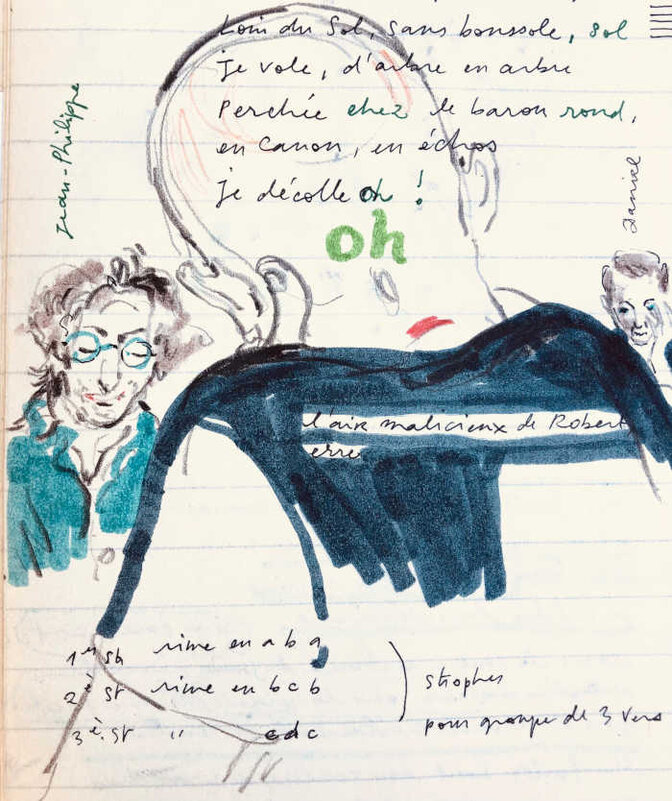 Loin du Sol, sans boussole, sol
je vole, d'arbre en arbre
Perchée chez le baron rond,
en canon, en échos
je décolle oh !
oh
Jean-Philippe
Daniel
l'air malicieux de Robert
erre
1er st rime en a b a
2è st rime en b c b
3è. st " c d c
strophes
pour groupe de 3 vers